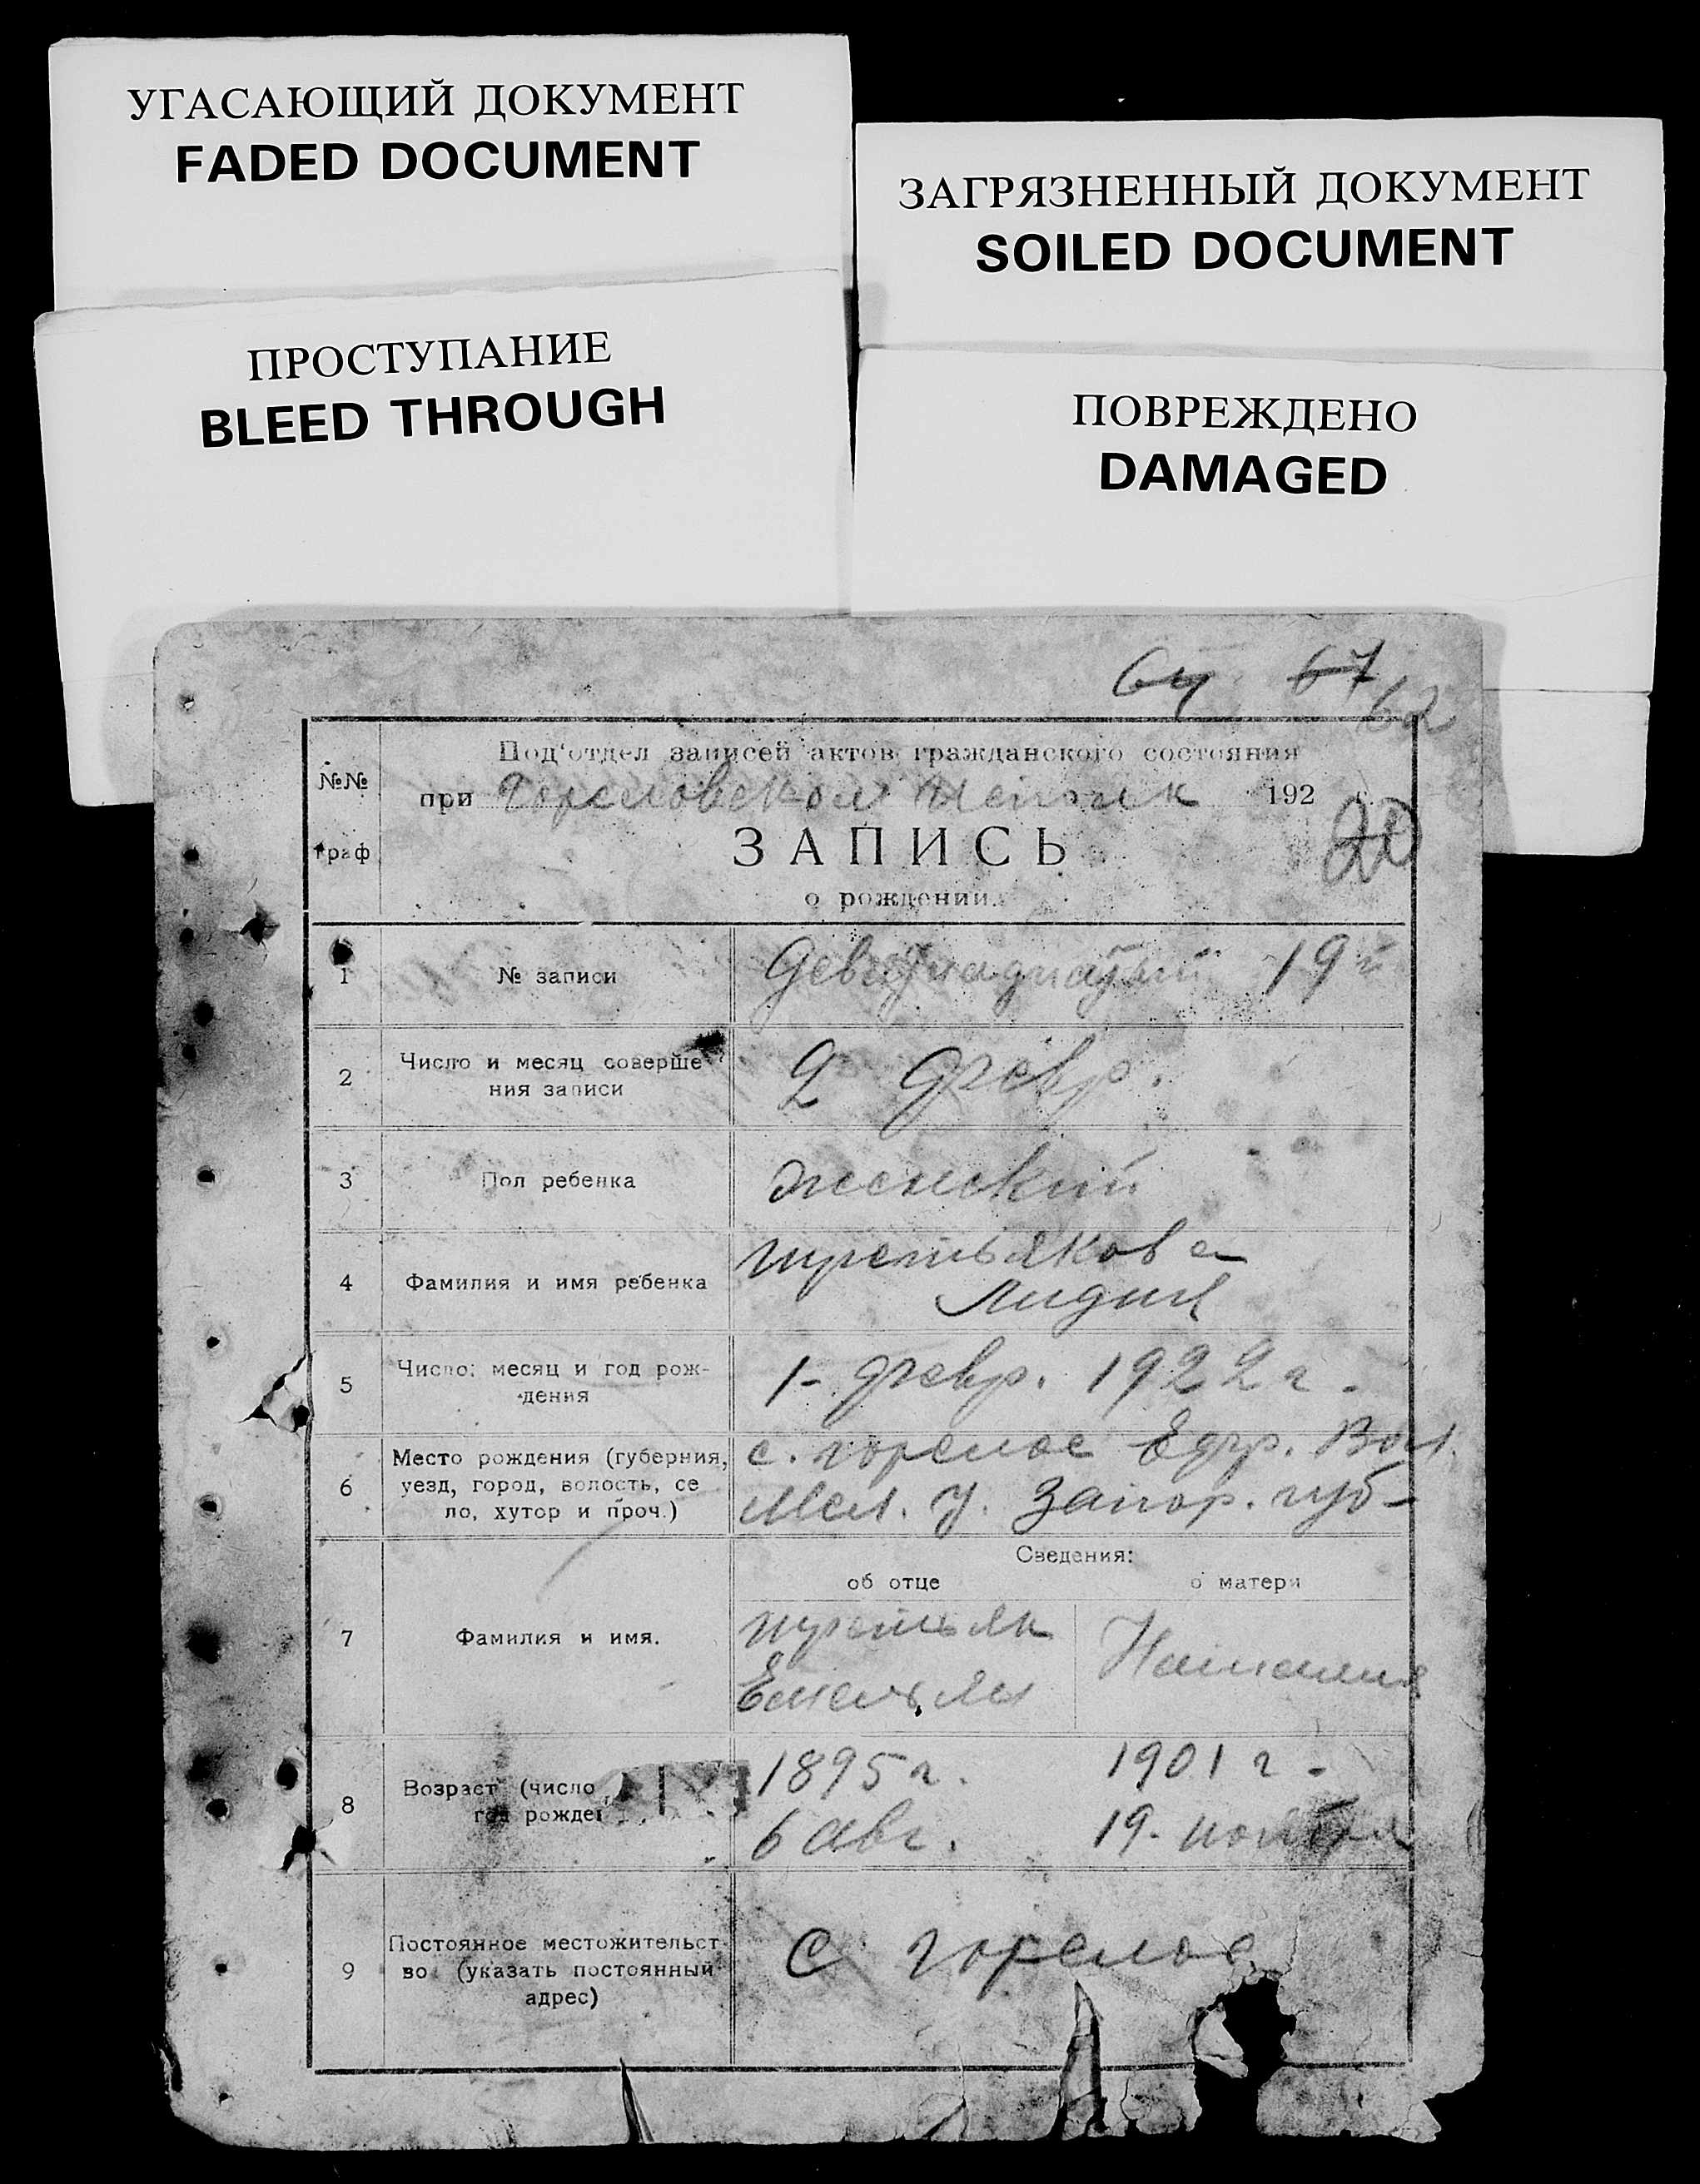 УГАСАЮЩИЙ ДОКУМЕНТ
FADED DOCUMENT
ЗАГРЯЗНЕННЫЙ ДОКУМЕНТ
SOILED DOCUMENT
ПРОСТУПАНИЕ
BLEED THROUGH
ПОВРЕЖДЕНО
DAMAGED
64 67
62
Под'отдел записей актов гражданского состояния
№№
при Гореловском 192 г.
граф
ЗАПИСЬ
20
о рождении.
1 № записи Девятнадцатый 19й
2 Число и месяц соверше
ния записи
2 февр.
3 Пол ребенка женский
4 Фамилия и имя ребенка
третьякова
Лидия
5 Число, месяц и год рож-
дения
1- февр. 1922 г.
6 Место рождения (губерния,
уезд, город, волость, се
ло, хутор и проч.)
с. горелое Ефр. Вол.
Мел. У. Запор. губ-
Сведения:
об отце о матери
7 Фамилия и имя.
третьяк
Емельян
Наталия
8 Возраст (число,
год рожде
1895 г. 1901 г.
6 авг. 19. ноября
9 Постоянное местожительст-
во (указать постоянный
адрес)
с горелое